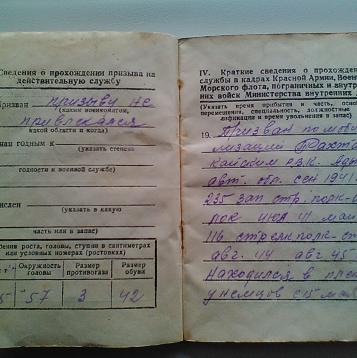 Сведения о прохождении призыва на
действительную службу
Призван призыву не
(каким военкоматом,
привлекался
какой области и когда)
нан годным к
(указать степень
годности к военной службе)
числен
(указать в какую
часть или в запас)
дения роста, головы, ступни в сантиметрах
или условных номерах (ростовках)
Окружность головы
Размер противогаза
Размер обуви
57
3
42
IV. Краткие сведения о прохожден
службы в кадрах Красной Армии, Воен
Морского флота, пограничных и внутр
них войск Министерства внутренних д
(Указать время прибытия в часть, особ
перемещения, специальность, должностные
лификации и время увольнения в запас)
19. Призван по моби
лизации
кайским РВК.
сен 1941
235 зап стр полк
июл 41 май
116 стрелк полк
авг. 44 авг 45
Находился в
у немцев с 15 мая